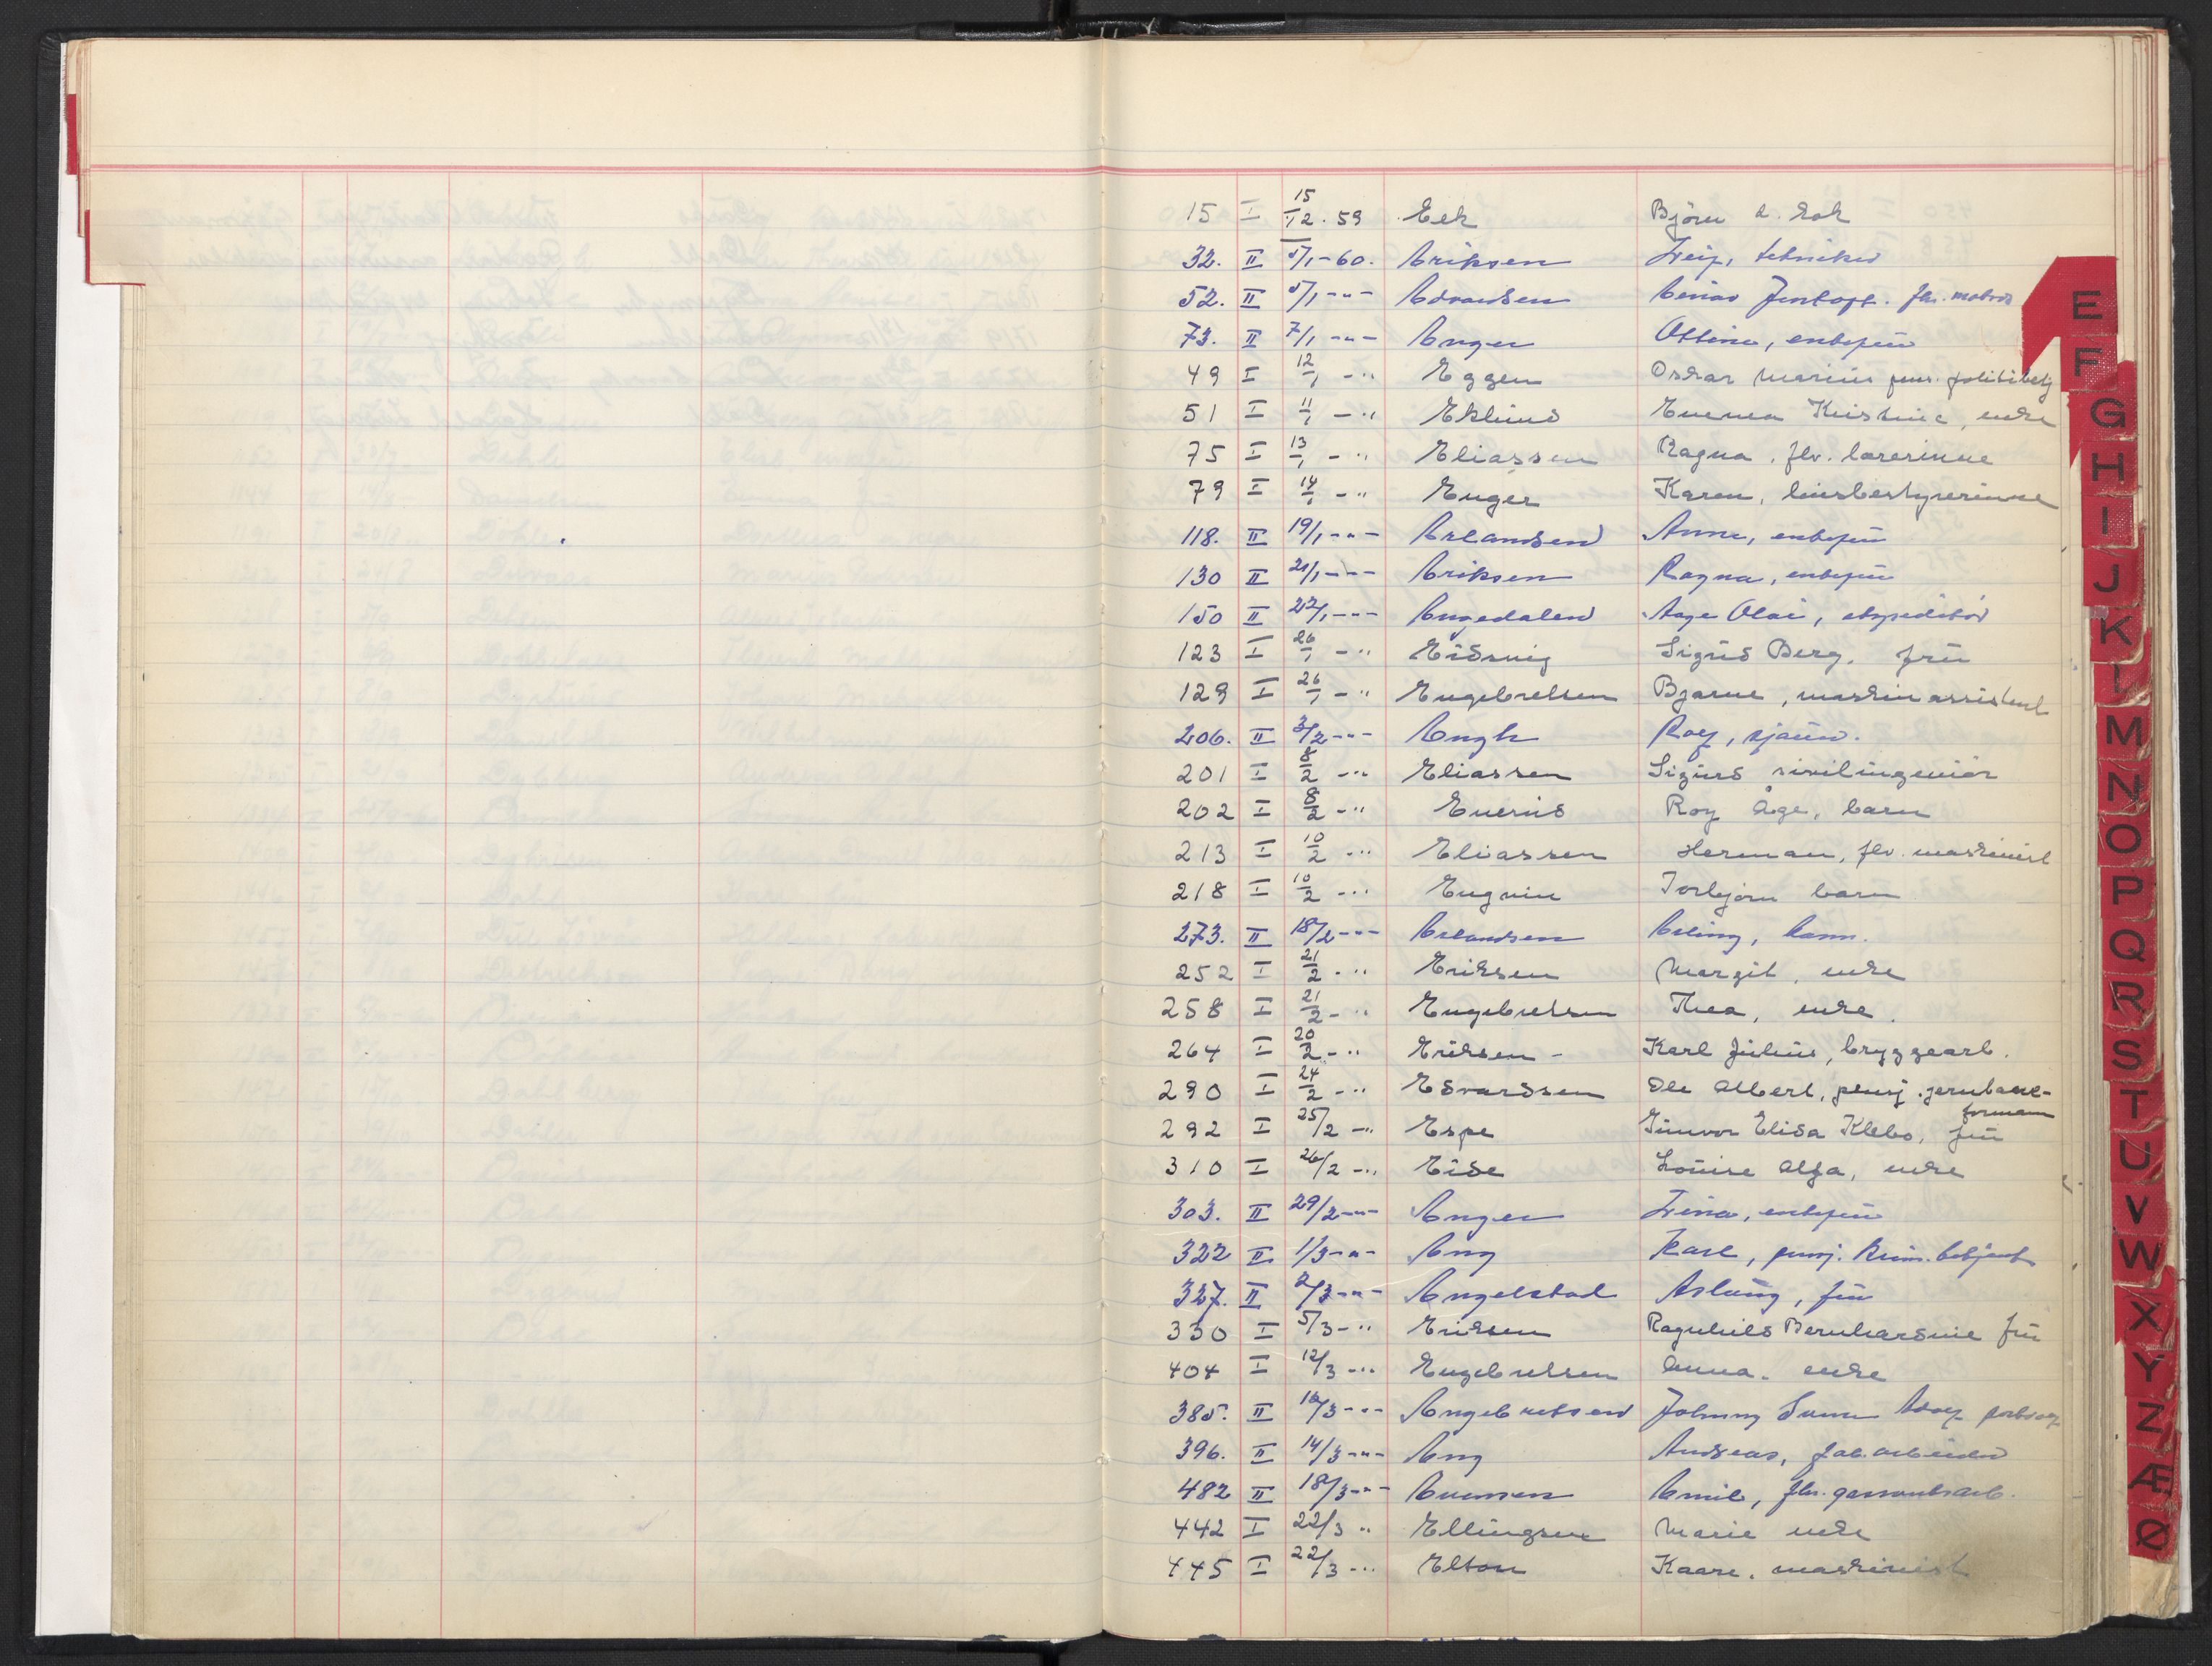 15 I 15/12.59 Eek Bjørn a. kok
32. II 5/1-60. Eriksen Leif, tekniker
52. II 5/1 -"- Edvardsen Einar Jentoft. fhv. matros
73. II 7/1 -"- Enger Ottine, enkefrü
49 I 12/1 -" Eggen Oskar Marius pens. politibetj
51 I 11/1 -" Eklund Emma Kristine, enke
75 I 13/1 -" Eliassen Ragna, flv. lærerinne
79 I 14/1 -" Enger Karen, husbestyrerinne
118. II 19/1 -"- Erlandsen Anne, enkefrü
130 II 21/1 -"- Eriksen Ragna, enkefrü
150 II 22/1 -"- Engedalen Aage Olai, ekspeditør
123 I 26/1 -" Eidsvig Sigrid Berg, frü
129 I 26/1 -" Engebretsen Bjarne, maskinassistent
206. II 3/2 -"- Engh Rolf, sjåfør.
201 I 8/2 -" Eliassen Sigurd sivilingeniør
202 I 8/2 -" Roy Åge, barn
213 I 10/2 -" Eliassen Herman, flv. maskinist
218 I 10/2 -" Torbjørn barn
273. II 18/2 -"- Erlandsen Erling,
252 I 21/2 -" Eriksen Margit, enke
258 I 21/2 -" Engebretsen Thea, enke.
264 I 20/2 -" Eriksen - Karl Julius, bryggearb.
290 I 24/2 -" Edvardsen Ole Albert, pensj. jernbane-
formann
292 I 25/2 -" Espe Gunvor Elisa Klebo, frü
310 I 26/2 -" Eide Louise Alfa, enke
303. II 29/2 -"- Enger Lina, enkefrü
322 II 1/3 -"- Eng Karl, pensj. krim. betjent
327. II 2/3 -"- Engelstad Aslaug, frü
330 I 5/3 -" Eriksen Ragnhild Bernhardine frü
404 I 12/3 -" Engebretsen Anna. enke
385. II 12/3 -"- Engebretsen Johnny
396. II 14/3 -"- Eng Andreas, fab.arbeider
482 II 18/3 -"- Evensen Emil, fhv. gassverksarb.
442 I 22/3 " Ellingsen Marie enke
445 I 22/3 -" Elton Kaare. maskinist
E
F
G
H
I
J
K
L
M
N
O
P
Q
R
S
T
U
V
W
X
Y
Z
Æ
Ø